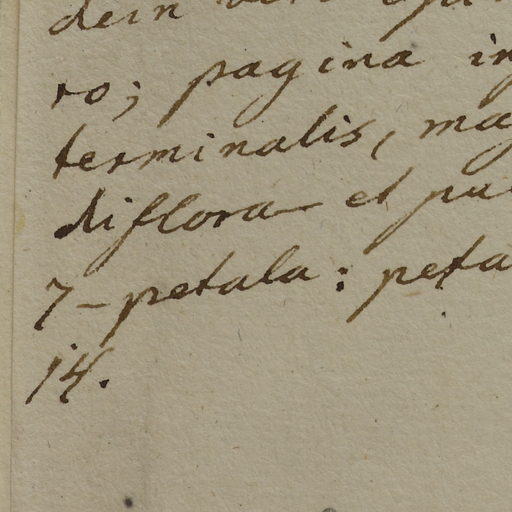 dein
ro; pagina in
terminalis, mag
diflora et pu
7-petala: peta
14.